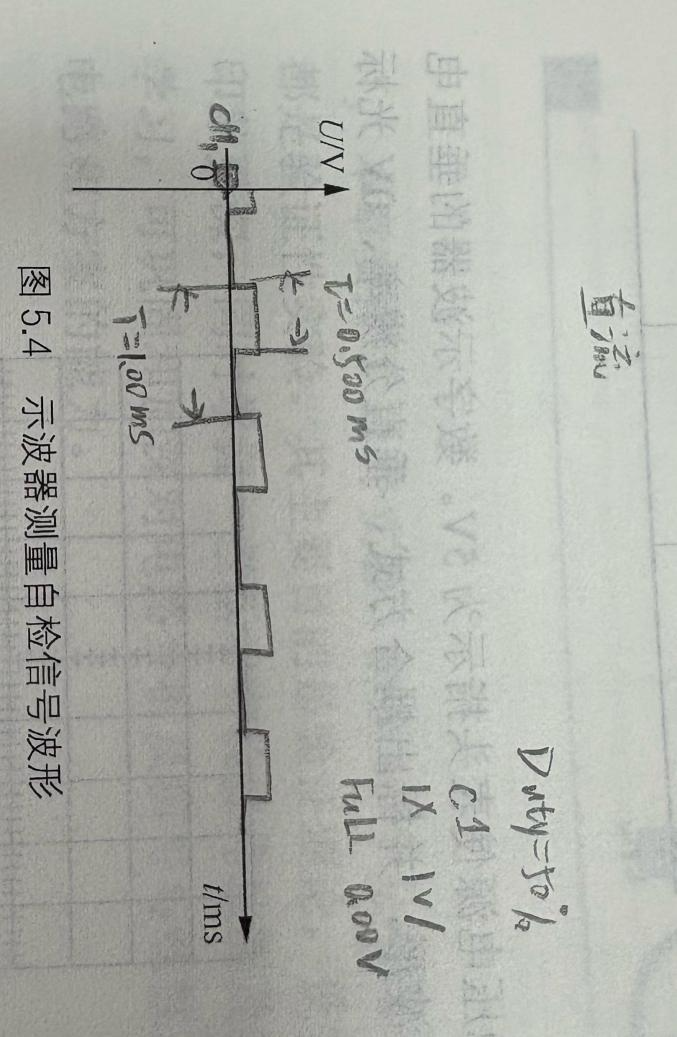 直流
Duty=50%
C1
1X 1V/
FULL 0.00V
U/V
τ=0.500ms
CH1
O
t/ms
T=1.00ms
图 5.4 示波器测量自检信号波形